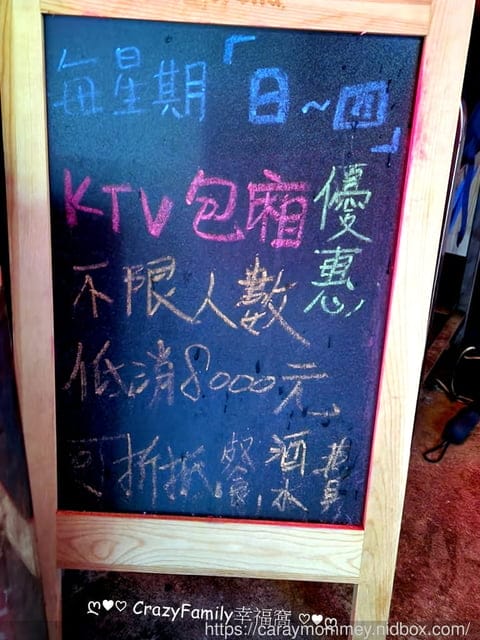 每星期「日~四」
KTV包廂優惠
不限人數
低消8000元
可折抵餐酒水費
ღ♥♡ CrazyFamily幸福窩 ♡♥ღ
https://caraymommey.nidbox.com/